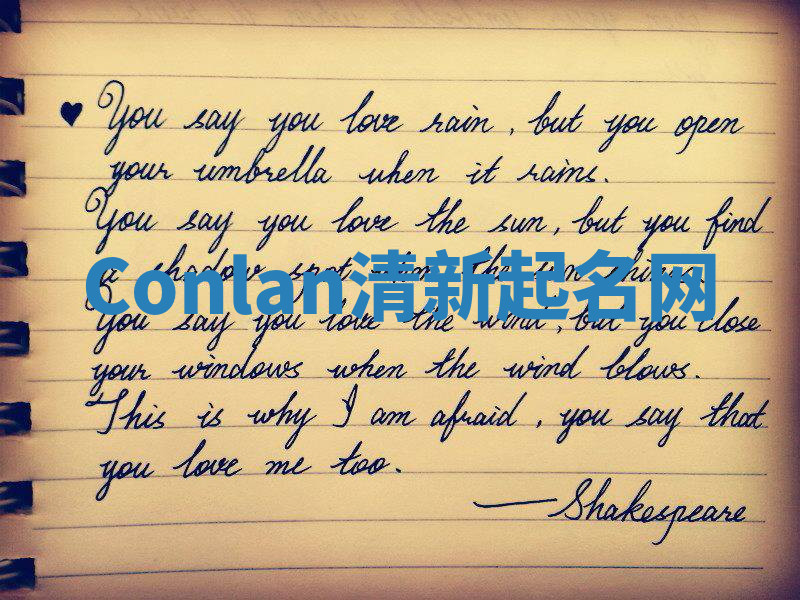 ♥ You say you love rain, but you open
your umbrella when it rains.
You say you love the sun, but you find
a shadow spot when the sun shines.
Conlan清新起名网
You say you love the wind, but you close
your windows when the wind blows.
This is why I am afraid, you say that
you love me too.
—Shakespeare